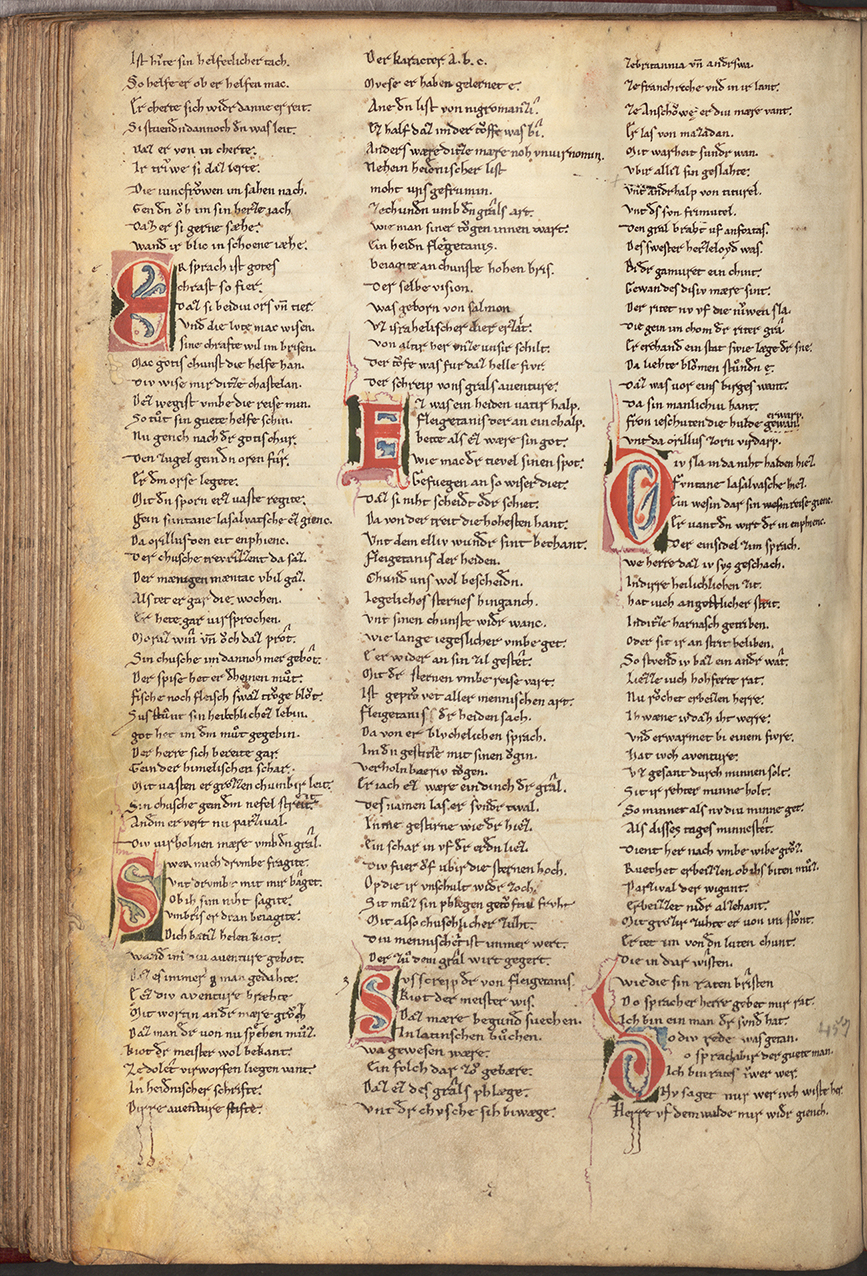 Ist hivte sin helfeclicher tach.
So helfe er ob er helfen mac.
Er cherte sich widr danne er reit.
Si stvendn dannoch dn was leit.
Daz er von in cherte.
Ir triwe si daz lerte.
Die iuncfrowen im sahen nach.
Gen dn och im sin herze iach
Daz er si gerne sæhe.
wand ir blic in schoene iæhe.
ER sprach ist gotes
chraft so fier.
Daz si beidiu ors vn tier.
Vnd die lvte mac wisen.
sine chrafte wil im brisen.
Mac gotis chunst die helfe han.
Div wise mir ditze chastelan.
Dez wegist vmbe die reise min.
So tuot sin guete helfe schin.
Nu gench nach dr gotis chur.
Den zugel gein dn oren fur.
Er dm orse legete.
Mit dn sporn erz vaste regite.
Gein funtane lasalvatsche ez gienc.
Da orillus den eit enphienc.
Der chusche trevrizzent da saz.
Der mænigen mæntac vbil gaz.
Als tet er gar die wochen.
Er hete gar virsprochen.
Moraz win vn och daz prot.
Sin chusche im dannoh mer gebot.
Der spise het er dheinen muot.
fische noch fleisch swaz truoge bluot.
Sus stuont sin heilichlichez lebin.
got het im dm muot gegebin.
Der herre sich bereite gar.
Gein der himelischen schar.
Mit vasten er grozzen chumbir leit.
Sin chusche gein dm nefel streit.
An dm er vert nu parzival.
Div virholnen mære vmb dn gral.
Swer mich drvmbe fragite.
Vnt drvmbe mit mir baget.
Ob ih sim niht sagite.
vmbris er dran beiagite.
Dich batiz helen kiot.
wand im div auenture gebot.
Daz es immer man gedahte.
E ez div aventure bræhte
Mit wortin an dr mære gruoz
Daz man dr von nu sprechen muoz.
kiot dr meister wol bekant.
Ze dolet virworfen ligen vant.
In heidnischer schrifte.
Dirre auenture stifte.
Der karacter A. b. c.
Muese er haben gelernet e.
Ane dn list von nigromanzi.
Ez half daz im der toffe was bi.
Anders wære ditze mære noh vnvirnomin.
Nehein heidnischer list
moht uns gefrumin.
Ze chundn vmb dn grals art.
wie man siner togen innen wart.
Ein heidn flegetanis.
beiagite an chunste hohen bris.
Der selbe vision.
Was geborn von salmon
Vz israhelischer dier erzalt.
Von altir her vnze unsir schilt.
Der tofe was fur daz helle fivr.
Der schreip vons grals aventure.
Ez was ein heiden vatir halp.
Flegetanis der an ein chalp.
bette als ez wære sin got.
wie mac dr tievel sinen spot.
Gefuegen an so wiser diet.
Daz si niht scheidt odr schiet.
Da von der treit die hohesten hant.
Vnt dem elliv wundr sint bechant.
flegetanis der heiden.
Chund uns wol bescheidn.
Iegeliches sternes hinganch.
Vnt sinen chunfte widr wanc.
wie lange iegeslicher vmbe get.
E er wider an sin zil gestet.
Mit dr sternen vmbe reise vart.
Ist gepruovet aller mennischen art.
flegetanis dr heiden sach.
Da von er blvchelichen sprach.
Im dn gestirte mit sinen ogin.
verholnbaeriv togen.
Er iach ez wære ein dinch dr gral.
Des namen las er svndr twal.
In me gestirne wie dr hiez.
Ein schar in vf dr erdn liez.
Div fuer of vbir die sternen hoch.
Op die ir vnschult widr zoch.
Sit muoz sin phlegen getoftiu fruht
Mit also chuschlicher zuht.
Diu mennischeit ist immer wert.
Der zuo dem gral wirt gegert.
Sys screip dr von flegetanis.
kiot der meister wis.
Daz mære begund suechen.
In latinschen buochen.
wa gewesen wære.
Ein folch dar zuo gebære.
Daz ez des grals phlæge.
Vnt dr chvsche sich biwæge.
Ze britannia vn andrswa.
Ze franchriche vnd in irlant.
Ze Anschowe er diu mære vant.
Er las von mazadan.
Mit warheit sundr wan.
Vbir allez sin geslahte.
Vnd andrhalp von titurel.
Vnt ds son frimutel.
Den gral braht uf anfortas.
Des swester herzeloyd was.
Bi dr gamuret ein chint.
Gewan des disiv mære sint.
Der ritet nv vf die niwen sla.
Die gein im chom dr riter gra
Er erchand ein stat swie læge dr sne.
Da liehte blomen stuondn e.
Daz was vor eins birges want.
Da sin manlichiu hant.
fron ieschuten die hulde gewan. erwarp.
Vnt da orillus zorn virdarp.
Div sla in da niht halden hiez.
Funtane lasalvasche hiez.
Ein wesin dar sin reise gienc.
Er vant dn wirt dr in enphienc.
Der einsidel zim sprach.
we herre daz iv sus geschach.
In dirre heilichlichen zit.
hat iuch angestlicher strit.
In ditze harnasch getriben.
Oder sit ir an strit beliben.
So stvend iv baz ein andr wat.
Liezze iuch hohferte rat.
Nu ruochet erbeizen herre.
Ih wæne iv daz iht werre.
Vnd erwarmet bi einem fivre.
Hat iuch aventure.
Vz gesant durch minnen solt.
Sit ir rehter minne holt.
So minnet als nv diu minne get.
Als disses tages minne stet.
Dient her nach vmbe wibe gruoz.
Ruochet erbeizzen ob ihs biten muoz.
Parzival der wigant.
Erbeizzet nidr alzehant.
Mit grozir zuhte er von im stuont.
Er tet im von dn luten chunt.
Die in dar wisten.
wie die sin raten bristen
Do sprach er herre gebet mir rat.
Ich bin ein man dr svnd hat.
Do div rede was getan.
Do sprach abir der guete man.
Ich bin rates iuwer wer.
Ny saget mir wer ivch wiste her.
Herre vf dem walde mir widr giench.
457